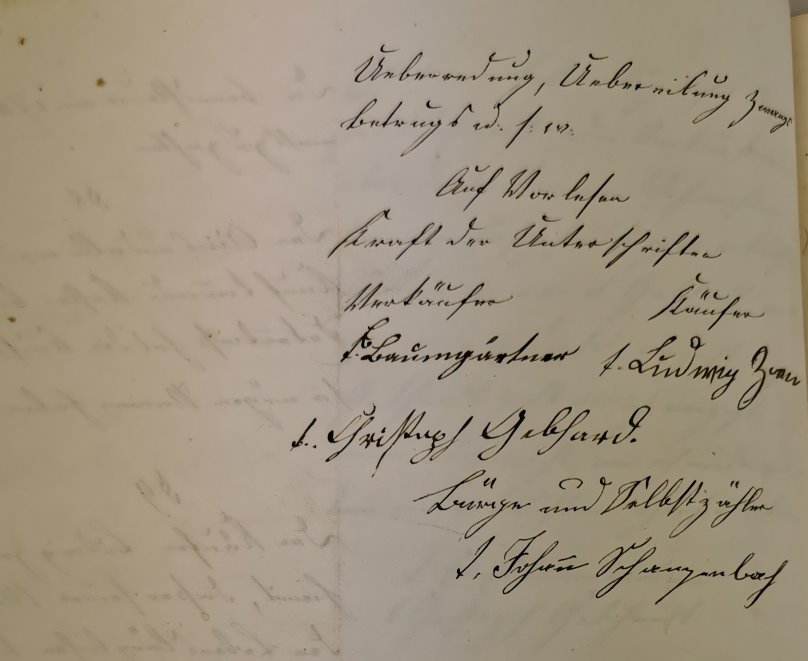 Ueberredung, Uebereilung Zwangs
Betrugs u. s. w.
Auf Vorlesen
Kraft der Unterschriften
Verkäufer Käufer
t. Baumgärtner t. Ludwig
t. Christoph Gebhard.
Bürge und Selbstzahler
t. Johann Schanzenbach